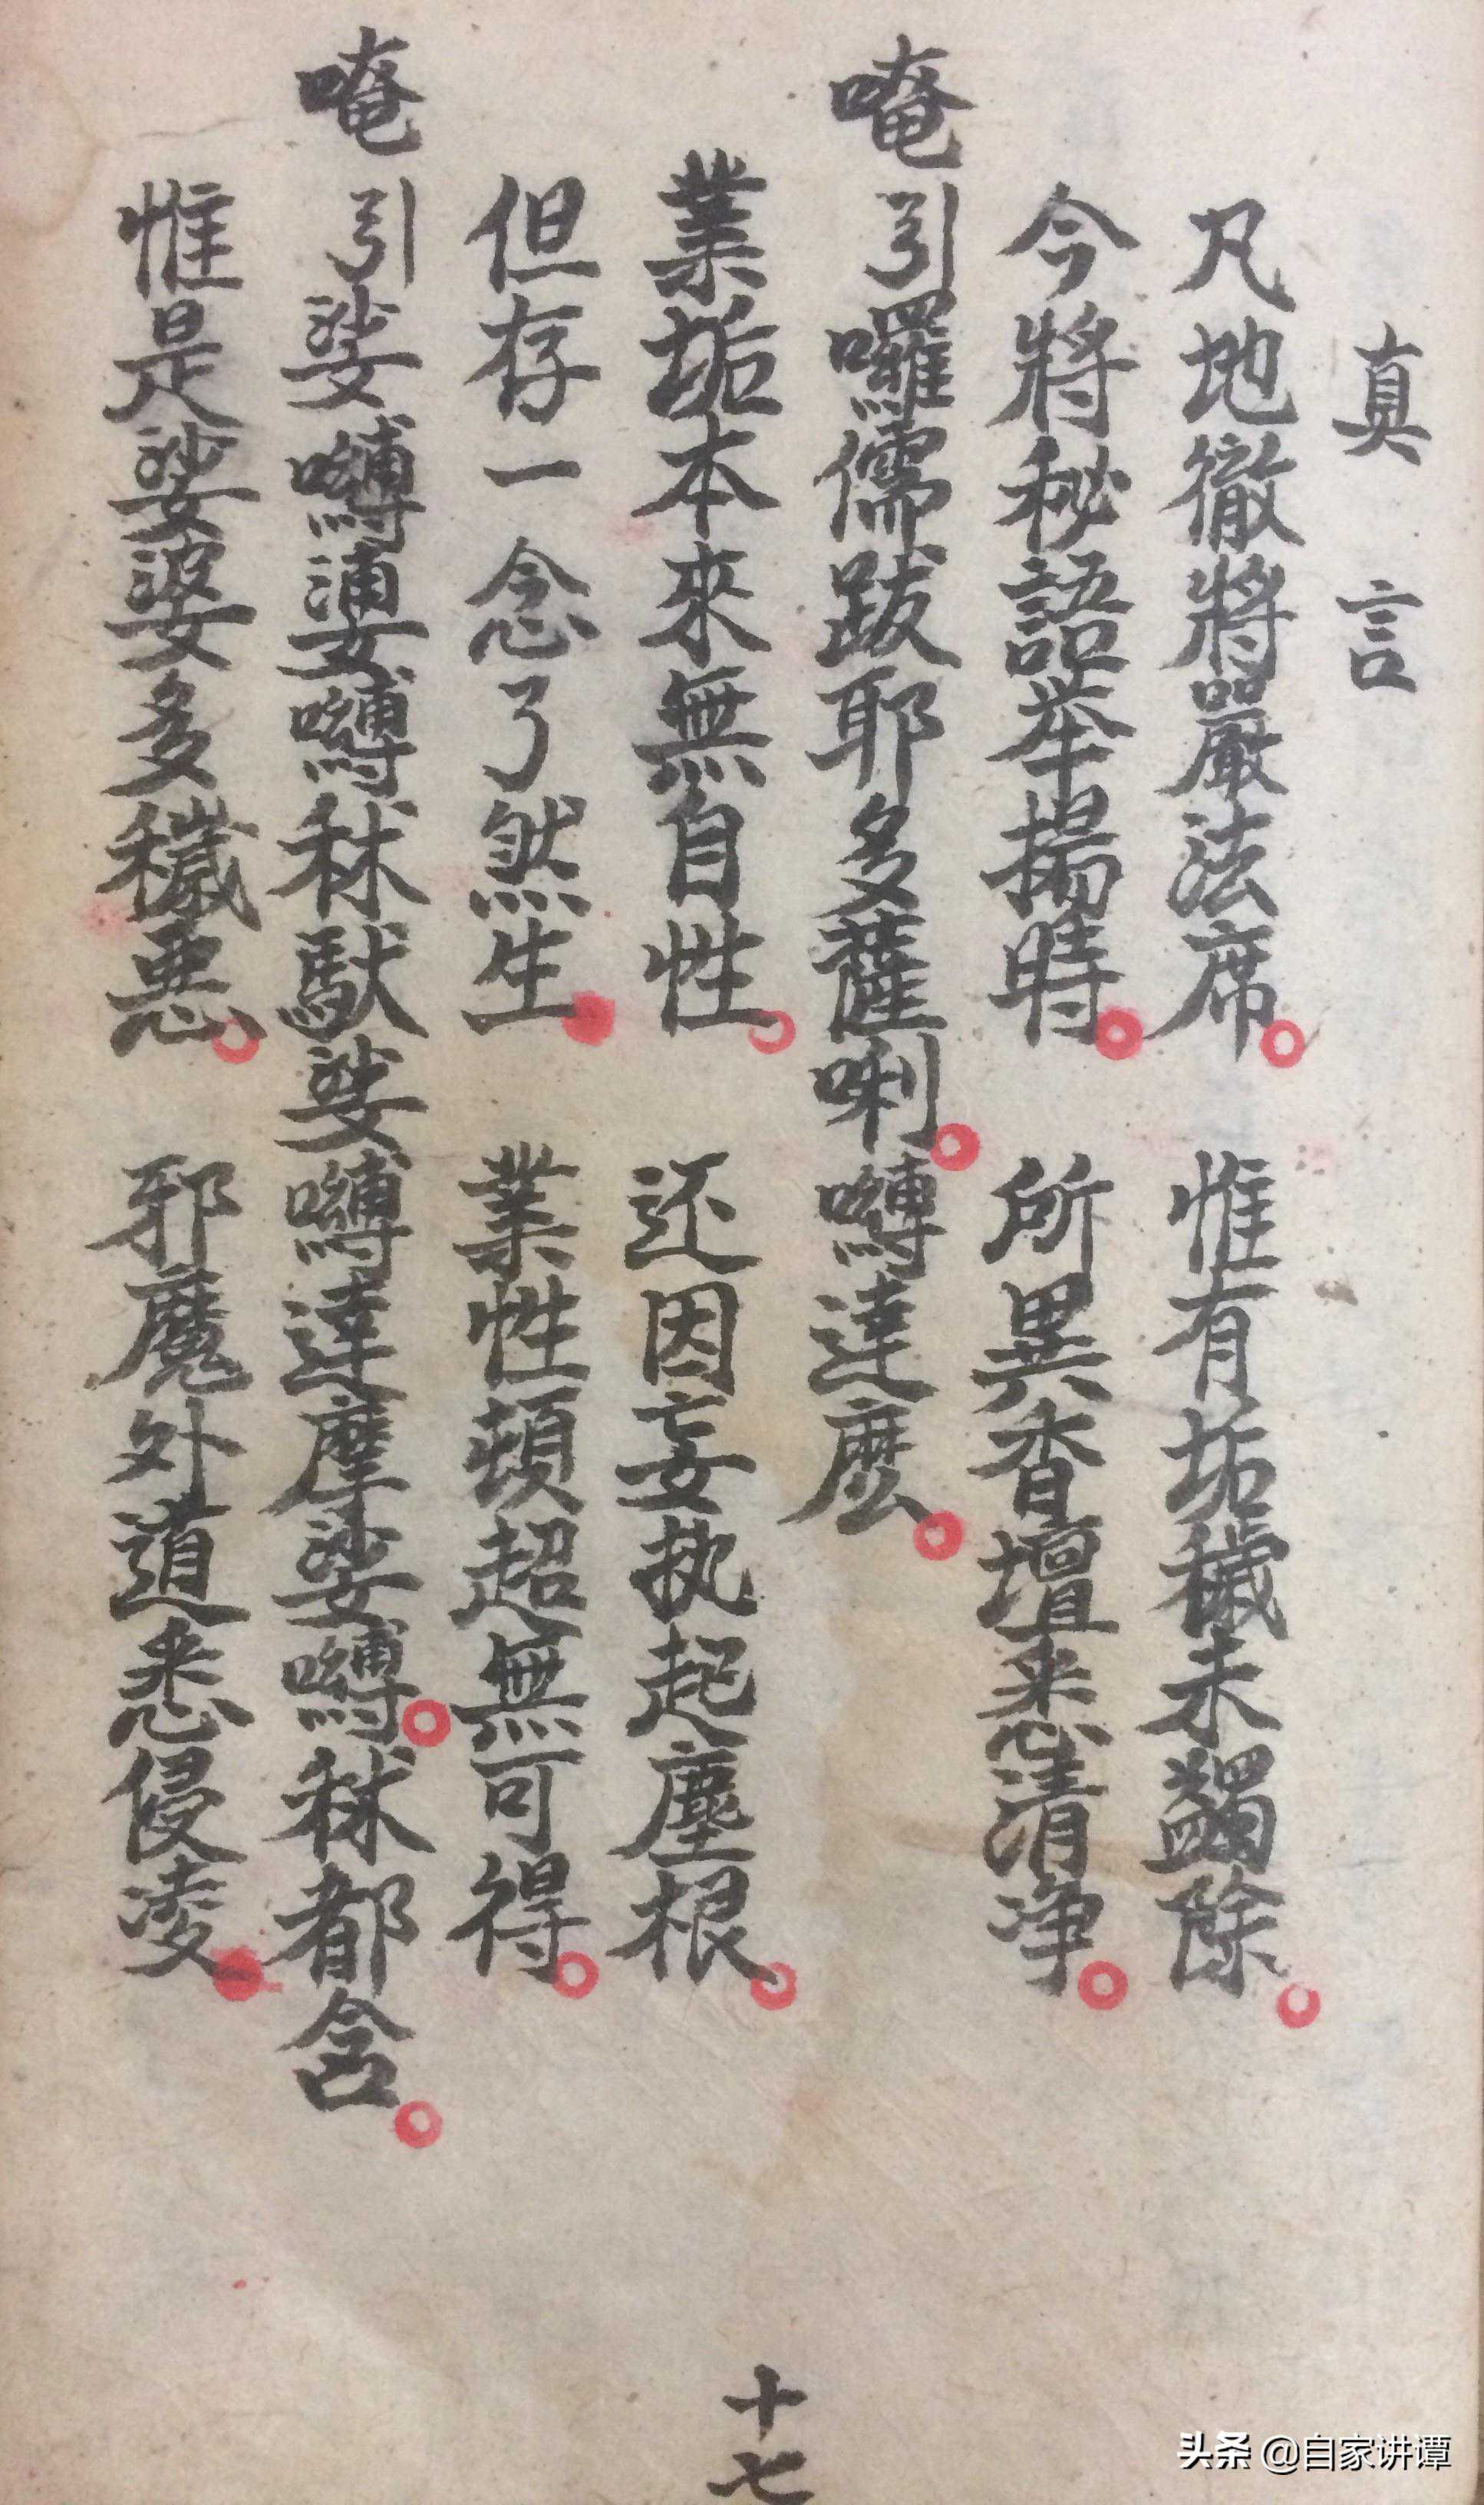 真言
凡地徹將嚴法席。惟有垢穢未蠲除。
今將秘語举揚時。所異香壇悉清净。
唵引囉儒跋耶多薩唎。嚩達麽。
業垢本來無自性。还因妄执起塵根。
但存一念了然生。業性頓超無可得。
唵引娑嚩婆嚩秫馱娑嚩達摩娑嚩。秫都含。
惟是娑婆多穢悪。邪魔外道悉侵凌。
十七
头条 @自家讲谭